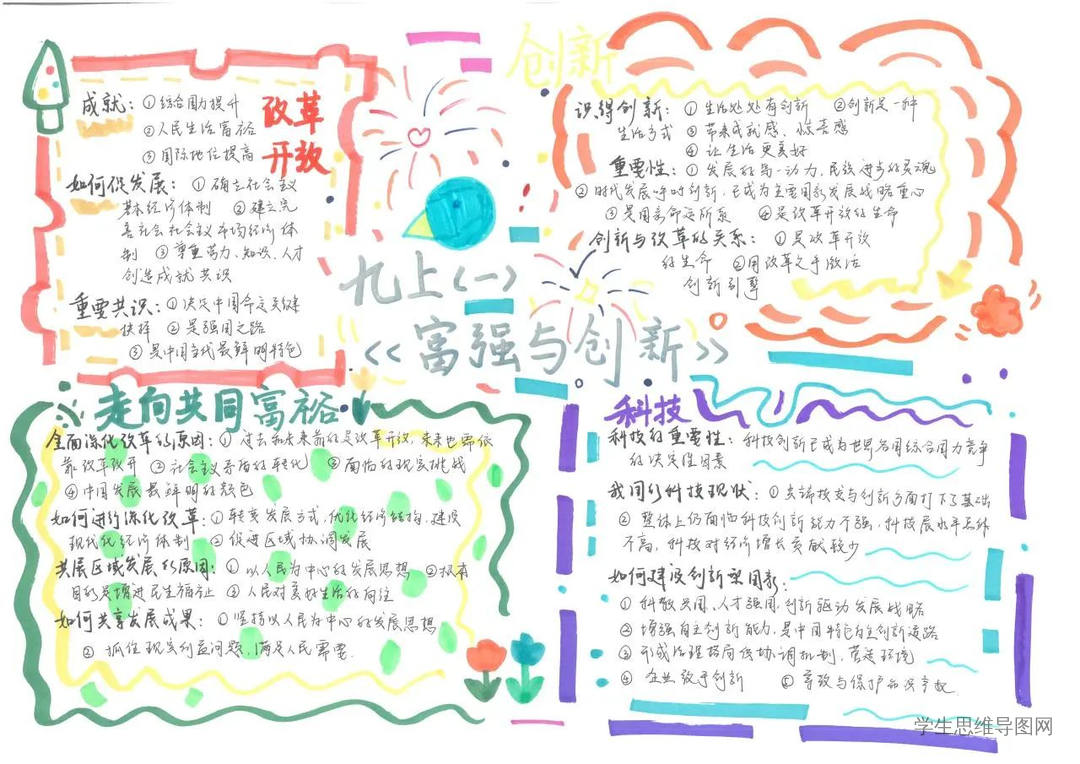 九上(一)
《富强与创新》
改革
开放
成就：①综合国力提升
②人民生活富裕
③国际地位提高
如何促发展：①确立社会主义
基本经济体制 ②建立完
善社会社会主义市场经济体
制 ③尊重劳力、知识、人才
创造成就共识
重要共识：①决定中国命运关键
抉择 ②是强国之路
③是中国当代最鲜明特色
创新
识得创新：①生活处处有创新 ②创新是一种
生活方式 ③带来成就感、惊喜感
④让生活更美好
重要性：①发展的第一动力，民族进步的灵魂
②时代发展呼吁创新，已成为主要国家发展战略重心
③是国家命运所系 ④是改革开放的生命
创新与改革的关系：①是改革开放
的生命 ②用改革之手激活
创新引擎
走向共同富裕
全面深化改革的原因：①过去和未来靠的是改革开放，未来也必依
靠改革开放 ②社会主要矛盾的转化 ③面临的现实挑战
④中国发展最鲜明的颜色
如何进行深化改革：①转变发展方式，优化经济结构，建设
现代化经济体制 ②促进区域协调发展
共展区域发展的原因：①以人民为中心的发展思想 ②根本
目的是增进民生福祉 ③人民对美好生活的向往
如何共享发展成果：①坚持以人民为中心的发展思想
②抓住现实利益问题，满足人民需要.
科技
科技的重要性：科技创新已成为世界各国综合国力竞争
的决定性因素
我国的科技现状：①尖端技支与创新方面打下了基础
②整体上仍面临科技创新能力不强，科技展水平总体
不高，科技对经济增长贡献较少
如何建设创新型国家：
①科教兴国、人才强国，创新驱动发展战略
②增强自主创新能力，是中国特色自主创新道路
③形成治理格局伐协调机制，营造环境
④企业敢于创新 ⑤尊敬与保护知识产权.
学生思维导图网